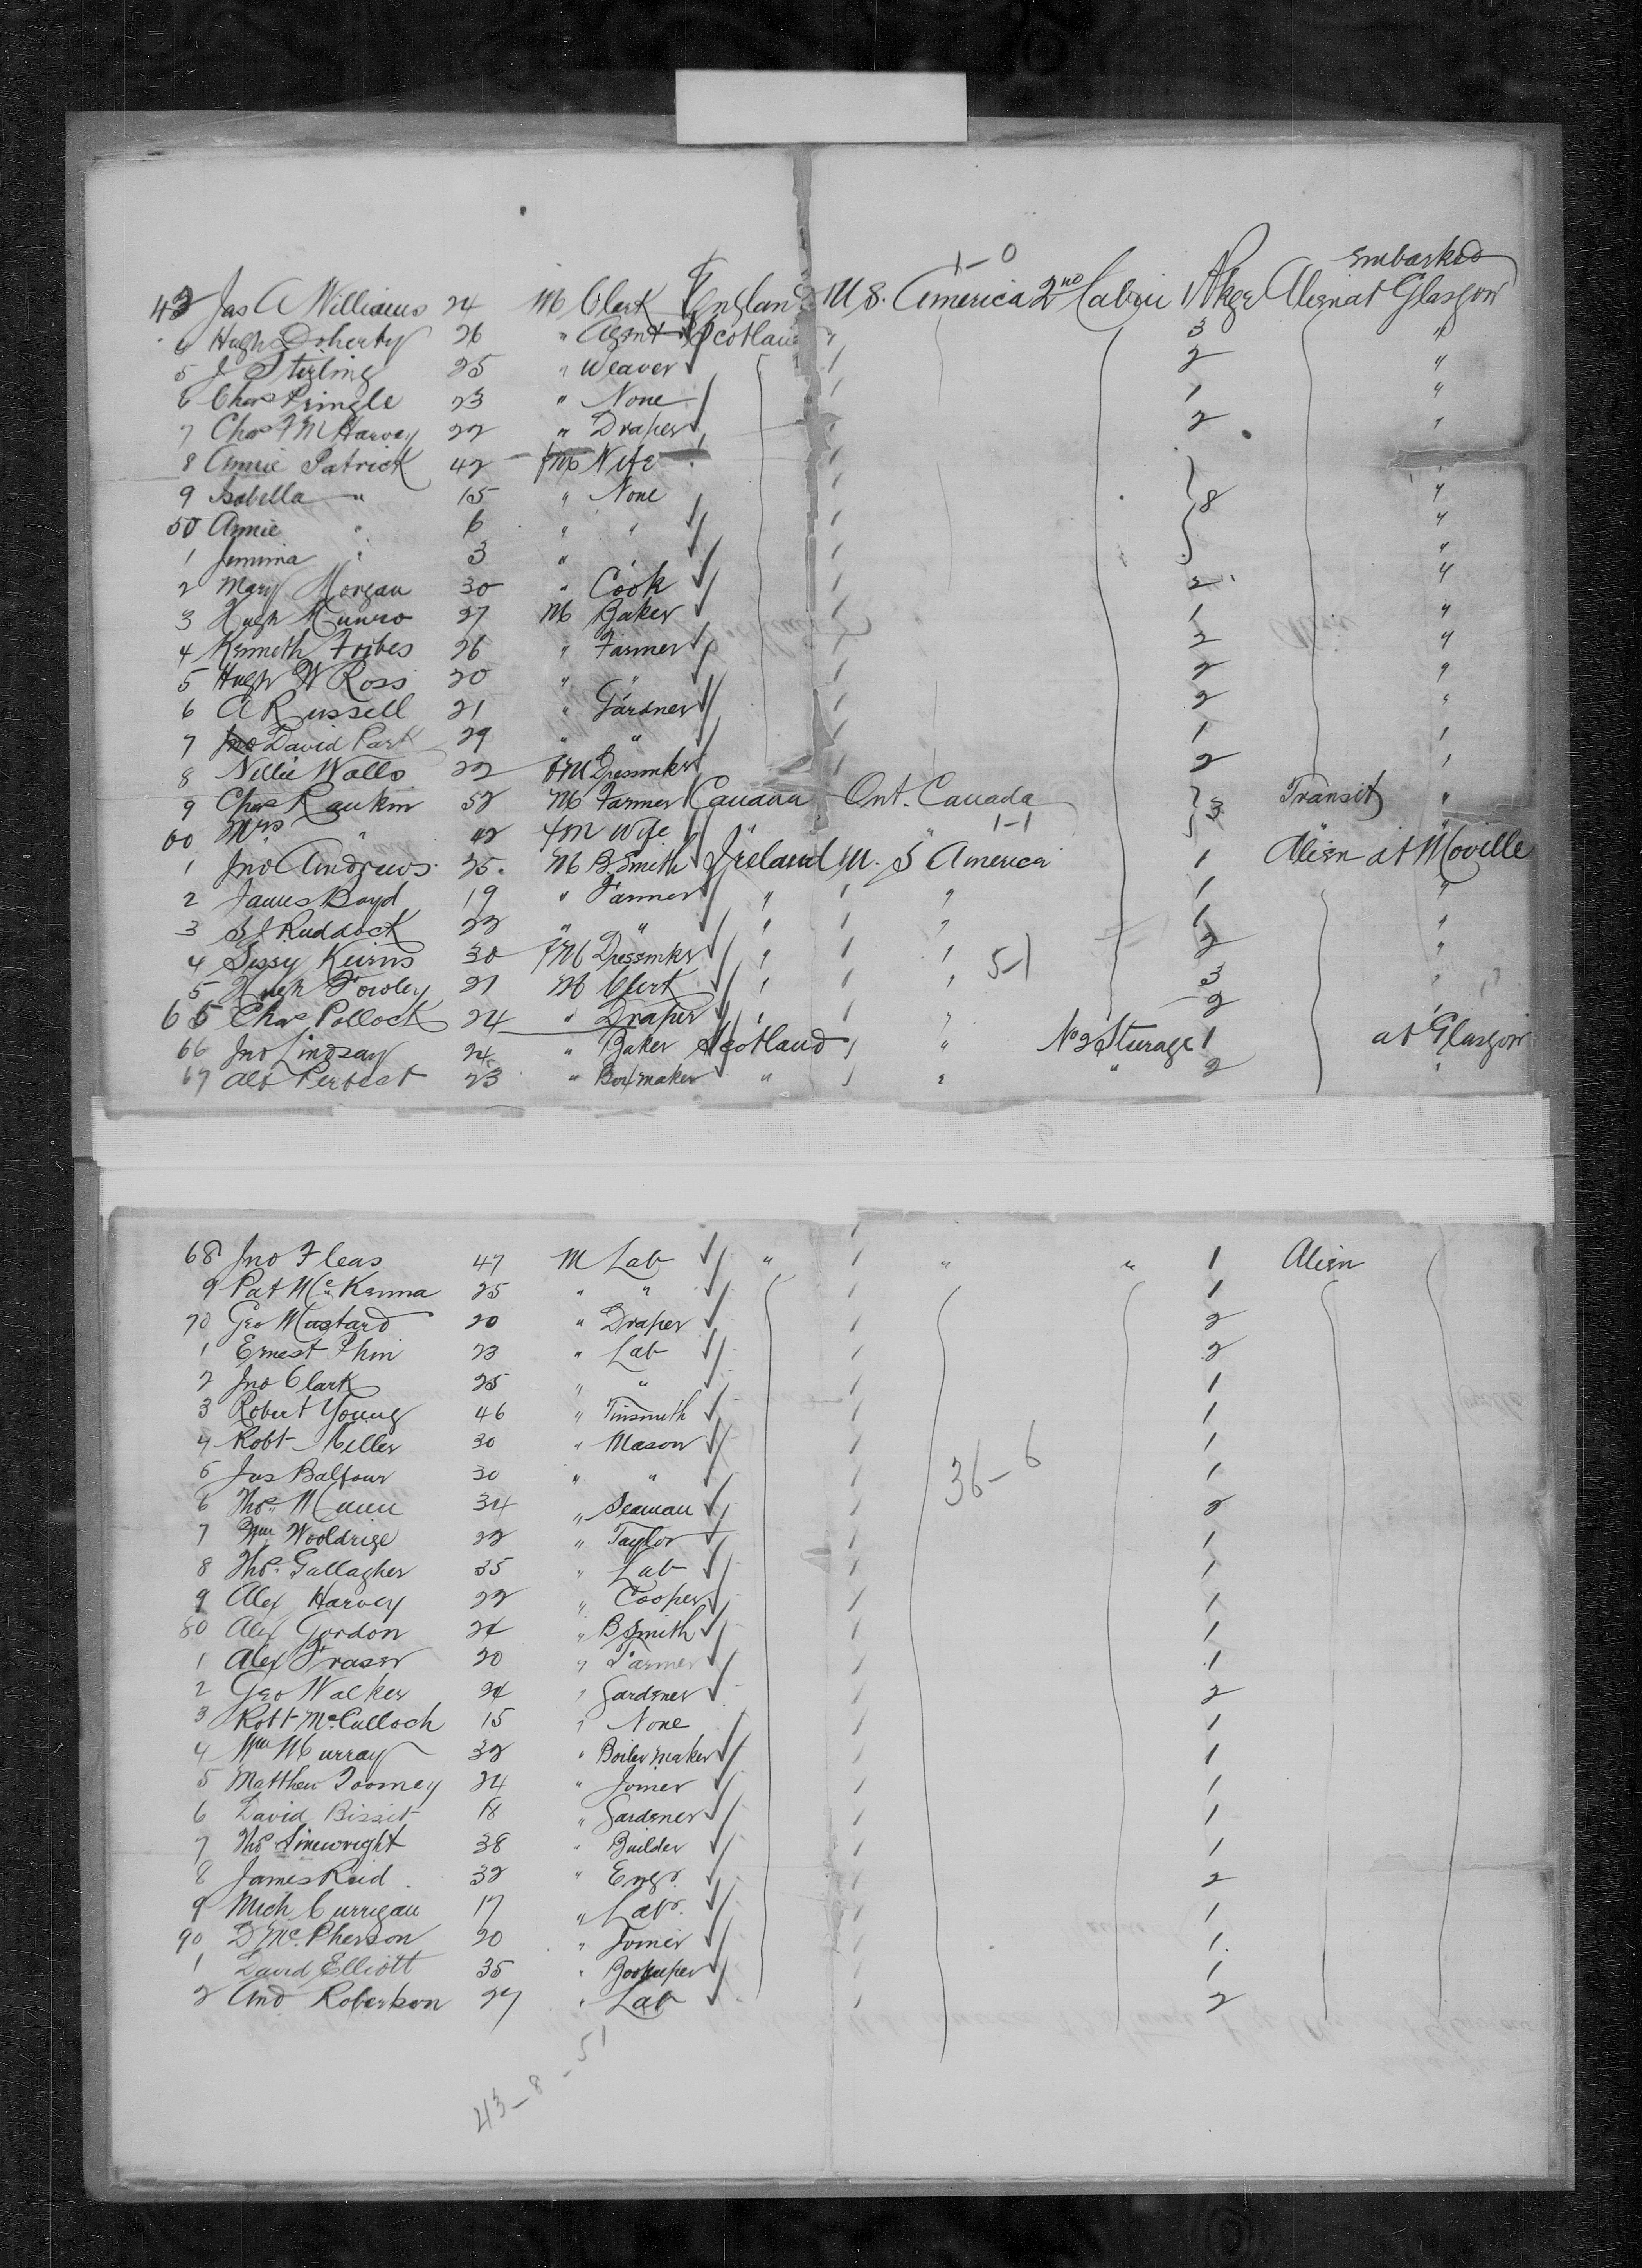 1-0
embarked
43 Jas A Williams 24 M Clerk England U S. America 2nd Cabin 1 Pkge Alien at Glasgow
4 Hugh Doherty 26 " Agent Scotland 3 "
5 J Stirling 25 " Weaver 2 "
6 Chas Pringle 23 " None 1 "
7 Chas F M Harvey 22 " Draper 2 "
8 Annie Patrick 42 fm Wife
9 Isabella " 15 " None 8 "
50 Annie " 6 " " "
1 Jemima " 3 " " "
2 Mary Morgan 30 " Cook 2 "
3 Hugh Munro 27 M Baker 1 "
4 Kenneth Forbes 26 " Farmer 2 "
5 Hugh W Ross 20 " " 2 "
6 A Russell 21 " Gardner 2 "
7 David Park 29 " " 1 "
8 Nellie Walls 22 fm Dressmkr 2 "
9 Chas Rankin 52 M Farmer Canada Ont. Canada 3 Transit "
60 Mrs " 42 fm Wife " " 1-1 "
1 Jno Andrews 25 M B. Smith Ireland U. S America 1 Alien at Moville
2 James Boyd 19 " Farmer " " " 1 "
3 S J Ruddock 22 " " " " " 1 "
4 Sissy Keirns 30 fm Dressmkr " " " 2 "
5-1
5 Hugh Fowley 21 M Clerk " " " 3 "
65 Chas Pollock 24 " Draper " " " 2 "
66 Jno Lindsay 24 " Baker Scotland " " No 2 Sturage 1 at Glasgow
67 Alb Perfect 23 " Boxmaker " " " " 2 "
68 Jno Fleas 47 M Lab " " " " 1 Alien
9 Pat McKenna 25 " " " 1
70 Geo Mustard 20 " Draper " 2
1 Ernest Phin 23 " Lab " 2
2 Jno Clark 25 " " " 1
3 Robert Young 46 " Tinsmith " 1
4 Robt Miller 30 " Mason " 1
36-6
5 Jas Balfour 30 " " " 1
6 Thos Munn 34 " Seaman " 2
7 Wm Wooldrige 22 " Taylor " 1
8 Thos Gallagher 35 " Lab " 1
9 Alex Harvey 22 " Cooper " 1
80 Alex Gordon 24 " B Smith " 1
1 Alex Fraser 20 " Farmer " 1
2 Geo Walker 24 " Gardener " 2
3 Robt McCulloch 15 " None " 1
4 Wm Murray 32 " Boiler maker " 1
5 Matthew Toomey 24 " Joiner " 1
6 David Bisset 18 " Gardener " 1
7 Thos Sinewright 38 " Builder " 1
8 James Reid 32 " Engr. " 2
9 Mich Currigan 17 " Labr. " 1
90 D McPherson 20 " Joiner " 1
1 David Elliott 35 " Bookeeper " 1
2 And Robertson 27 " Lab " 2
43-8-51